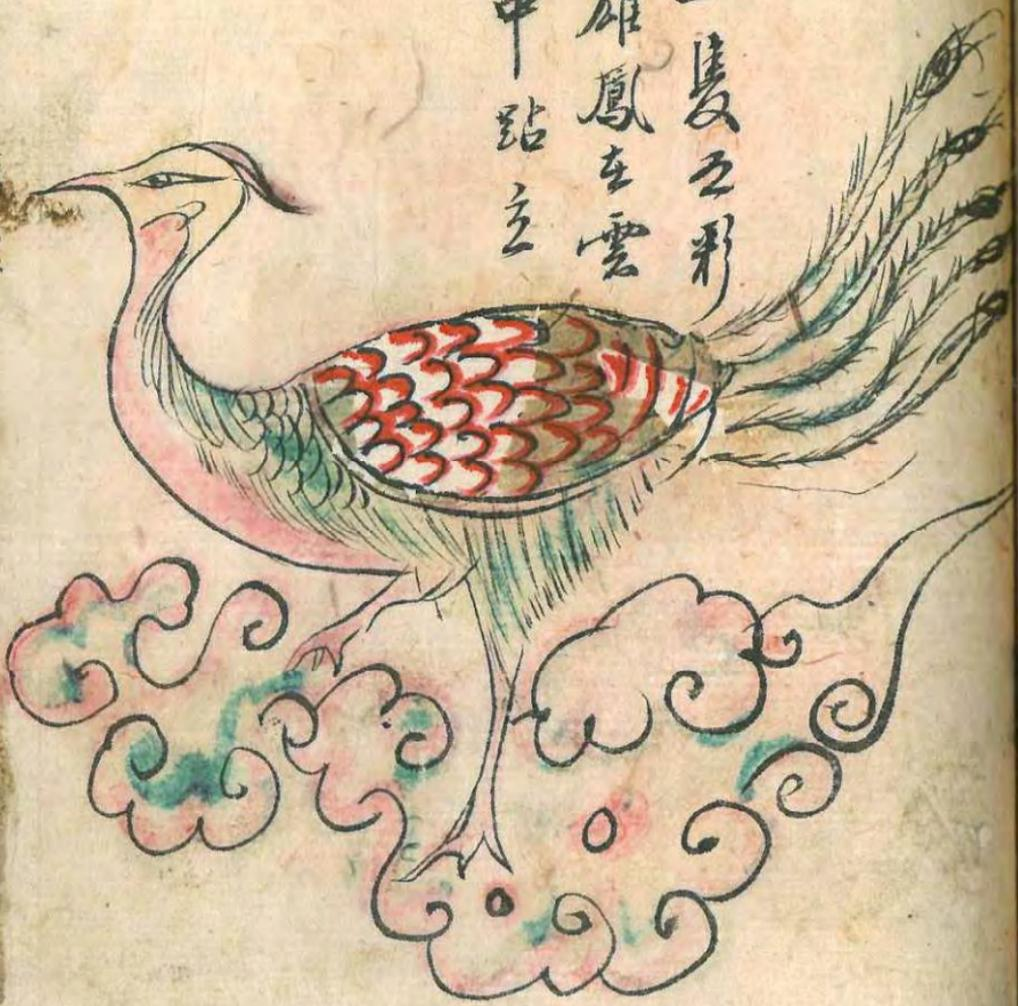 隻五彩
雄鳳在雲
中跕立